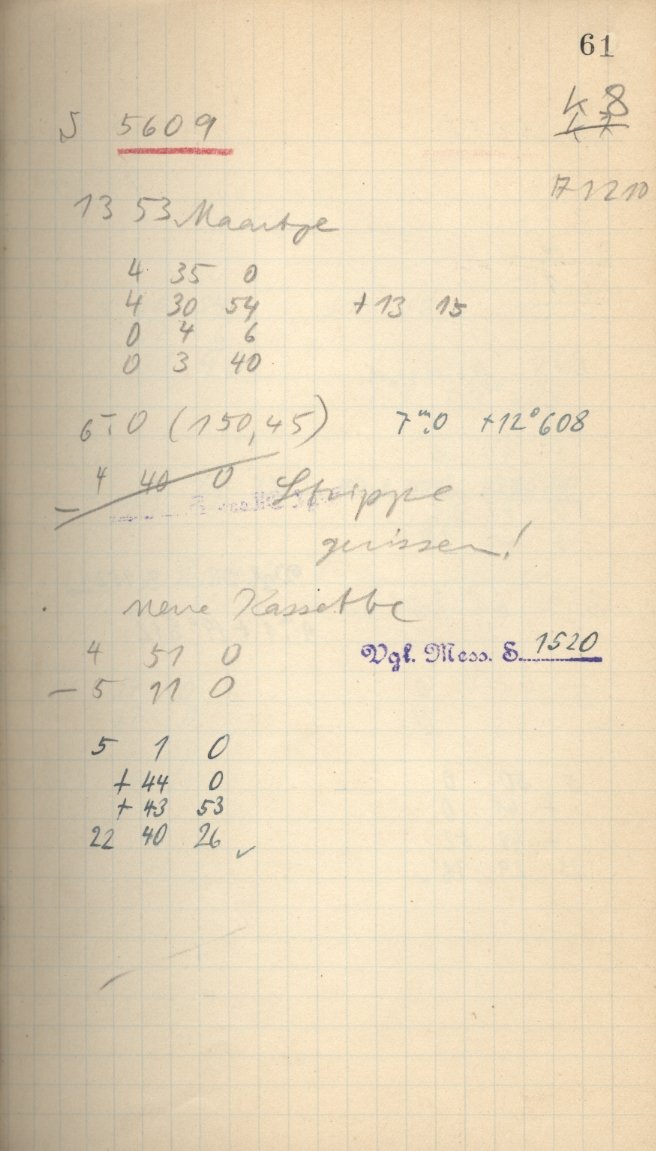 61
S 5609
k 8
k 7
171210
13 53 Maartje
4 35 0
4 30 54 +13 15
0 4 6
0 3 40
6T0 (150,45) 7ᵐ.0 +12°608
4 40 0 Strippe
gerissen!
neue Kassette
4 51 0
Vgl. Mess. S. 1520
– 5 11 0
5 1 0
+ 44 0
+ 43 53
22 40 26 ✓